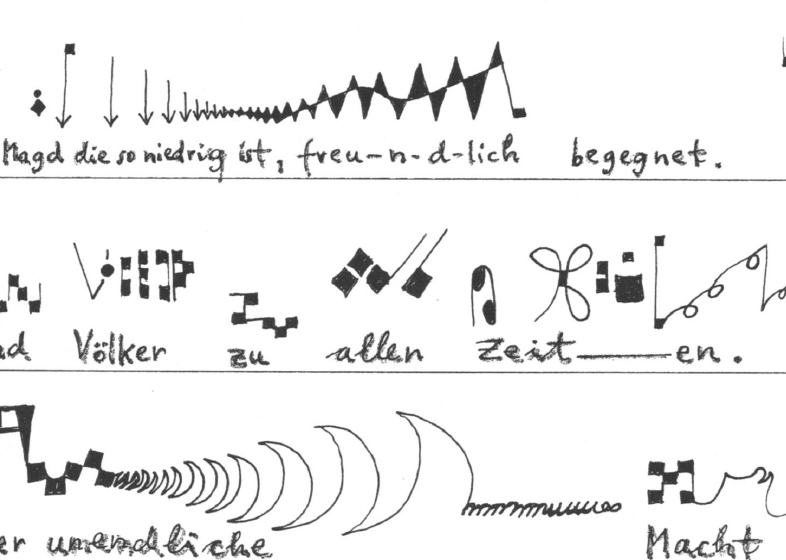 Magd die so niedrig ist, freu-n-d-lich begegnet.
Völker zu allen Zeit——en.
unendliche Macht